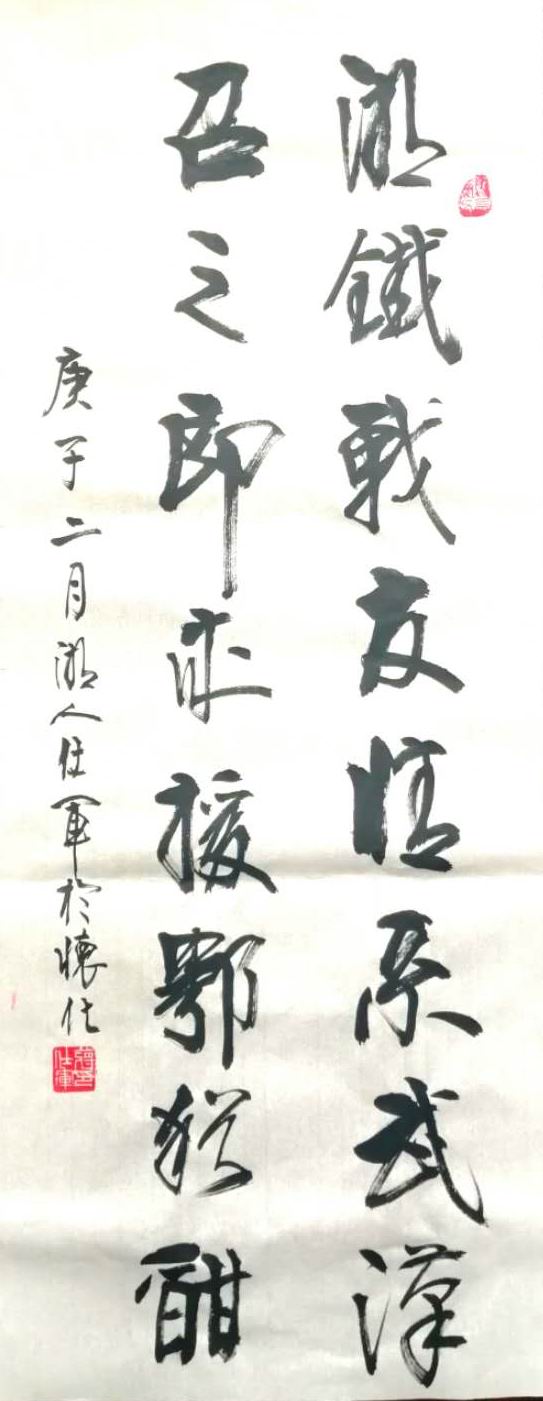 湘鐵戰友情系武漢
召之即來援鄂猶酣
庚子二月湘人仕軍於懷化